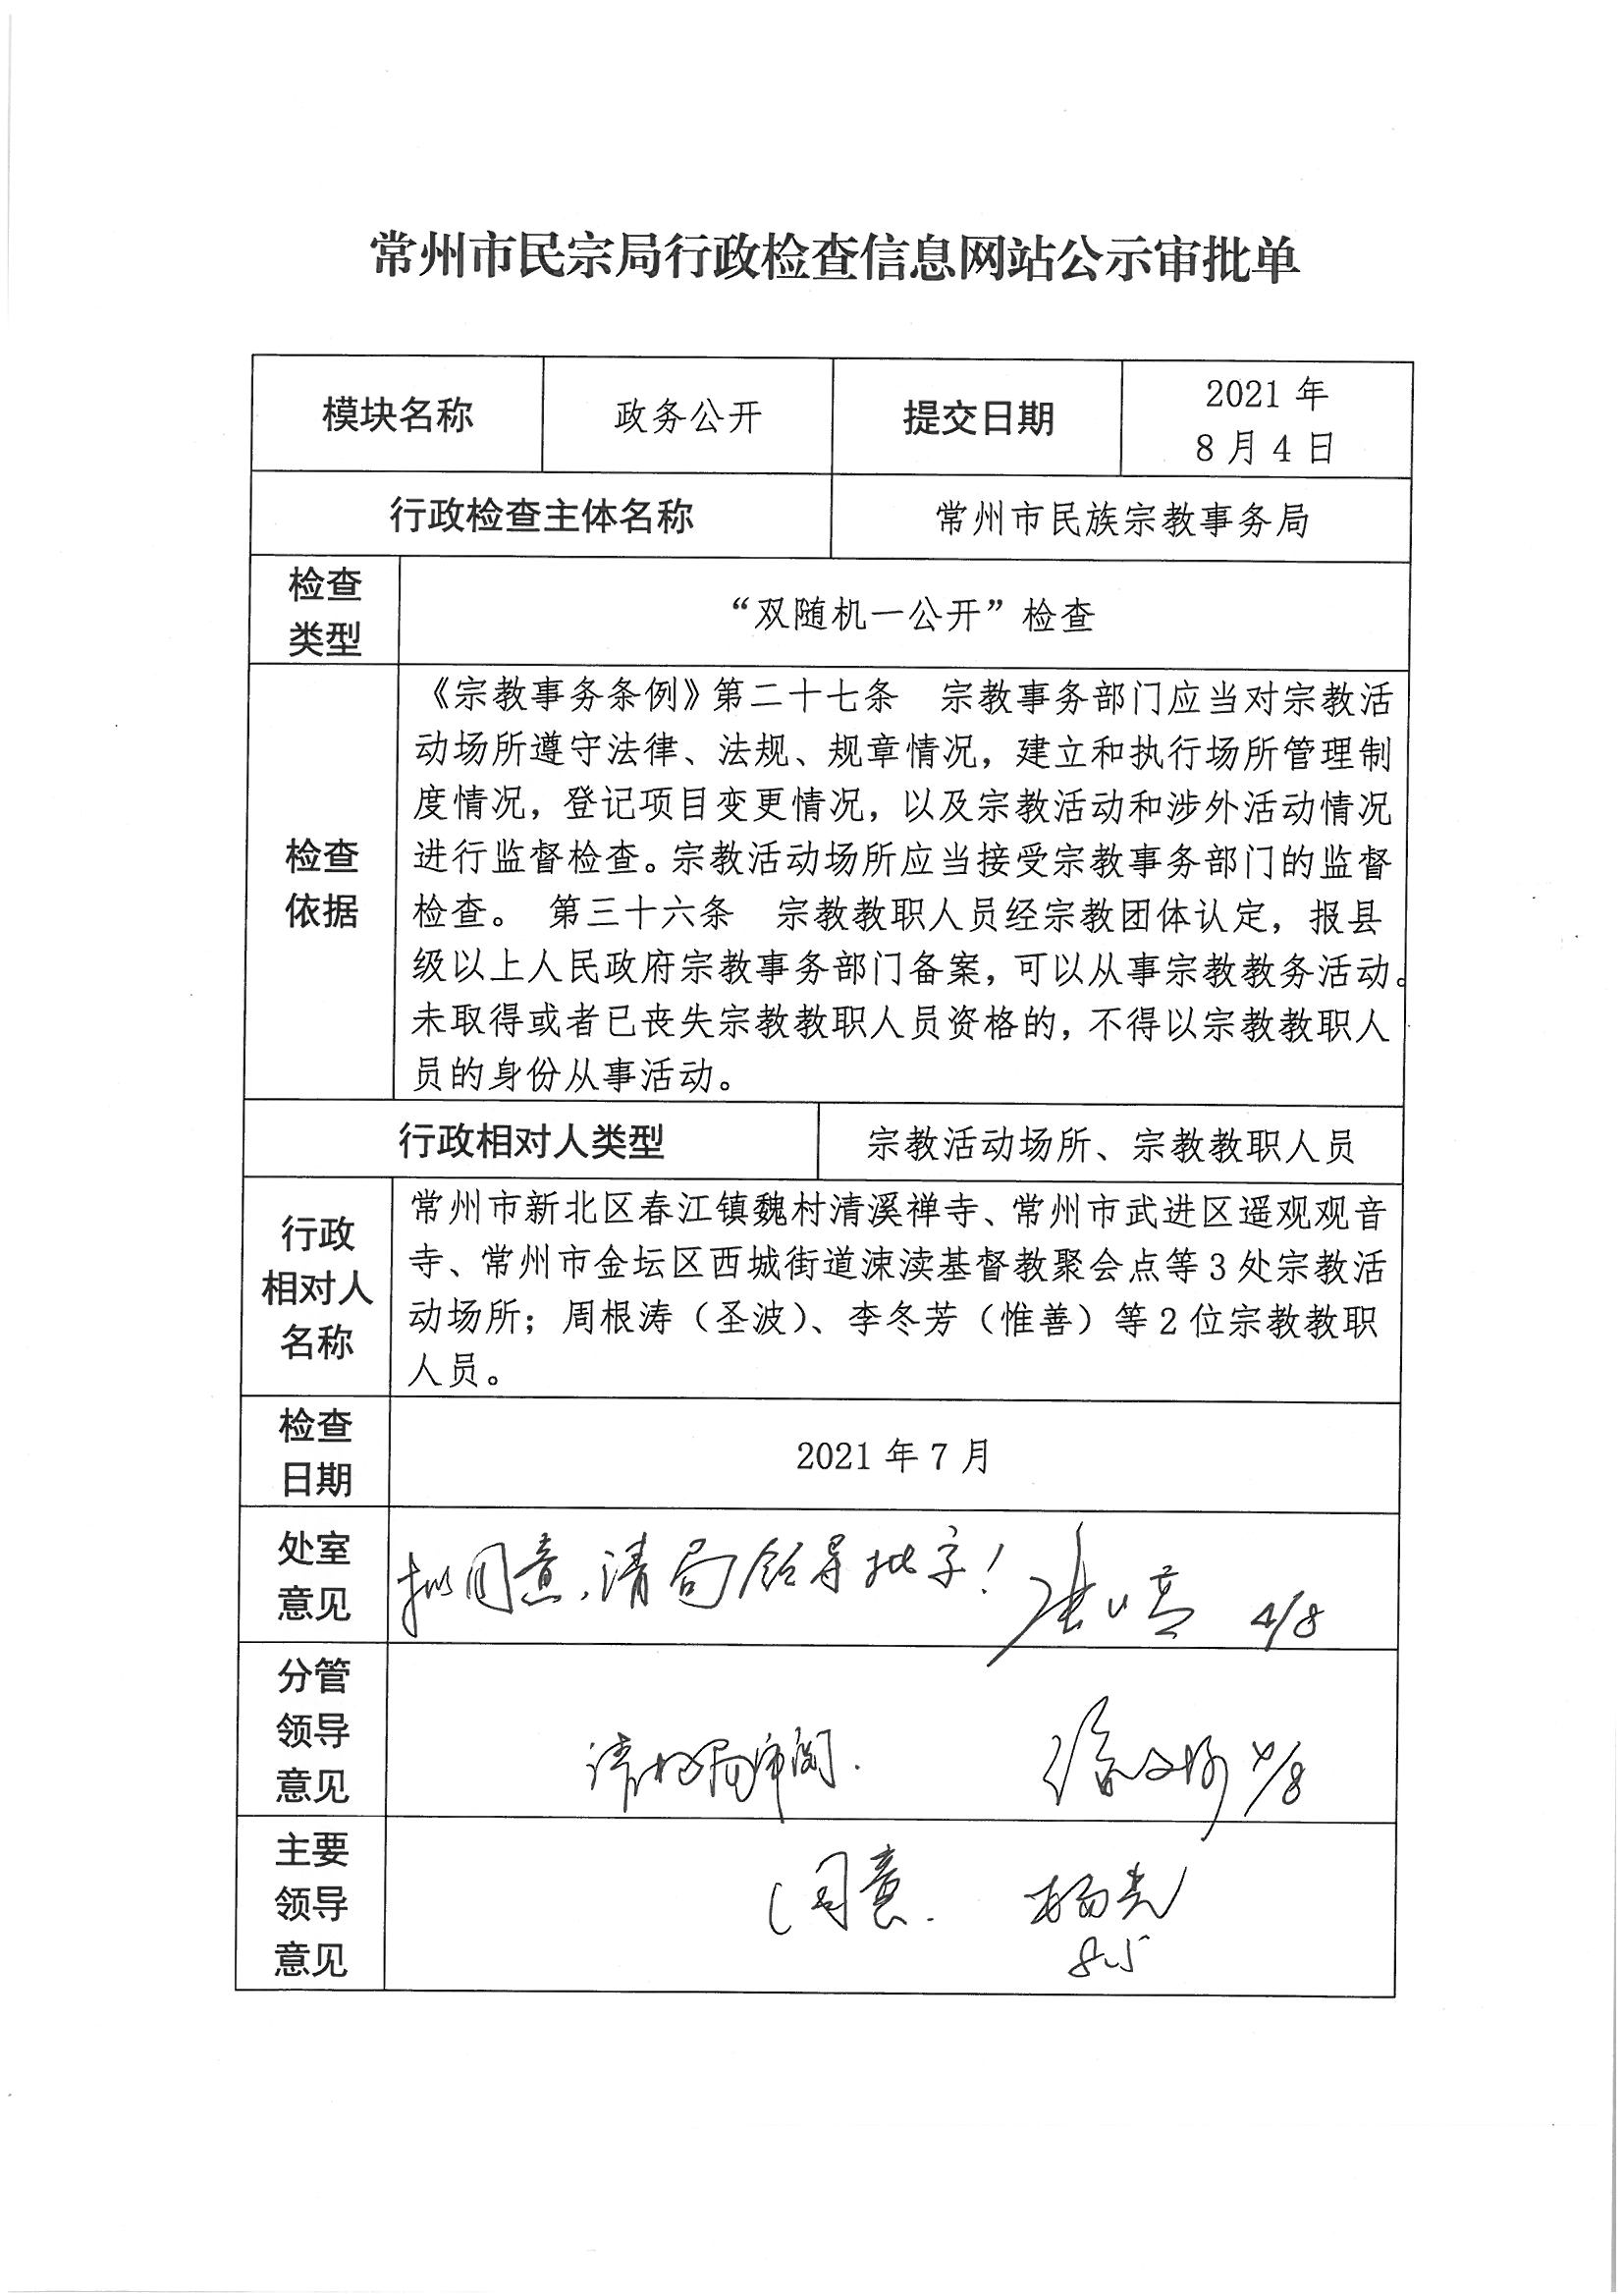 常州市民宗局行政检查信息网站公示审批单
模块名称
政务公开
提交日期
2021 年
8 月 4 日
行政检查主体名称
常州市民族宗教事务局
检查
类型
“双随机一公开”检查
检查
依据
《宗教事务条例》第二十七条　宗教事务部门应当对宗教活
动场所遵守法律、法规、规章情况，建立和执行场所管理制
度情况，登记项目变更情况，以及宗教活动和涉外活动情况
进行监督检查。宗教活动场所应当接受宗教事务部门的监督
检查。　第三十六条　宗教教职人员经宗教团体认定，报县
级以上人民政府宗教事务部门备案，可以从事宗教教务活动。
未取得或者已丧失宗教教职人员资格的，不得以宗教教职人
员的身份从事活动。
行政相对人类型
宗教活动场所、宗教教职人员
行政
相对人
名称
常州市新北区春江镇魏村清溪禅寺、常州市武进区遥观观音
寺、常州市金坛区西城街道涑渎基督教聚会点等 3 处宗教活
动场所；周根涛（圣波）、李冬芳（惟善）等 2 位宗教教职
人员。
检查
日期
2021 年 7 月
处室
意见
拟同意，请局领导批字！
4/8
分管
领导
意见
请杨局审阅.
4/8
主要
领导
意见
同意.
杨光
8.5